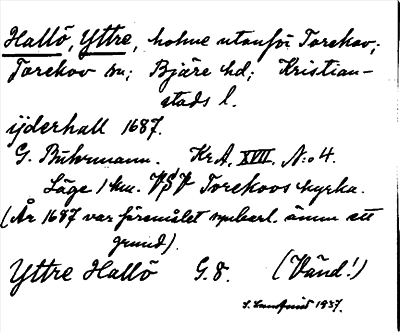 Hallö, Yttre, holme utanför Torekov;
Torekov sn; Bjäre hd; Kristian-
stads l.
ijderhall 1687.
G. Buhrmann. KrA, XVII, N:o 4.
Läge 1 km. VSV Torekovs kyrka.
(År 1687 var föremålet synbarl. ännu ett
grund).
Yttre Hallö G.8. (Vänd!)
1937.